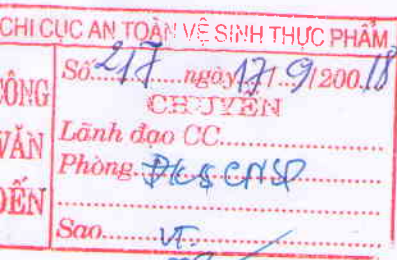 CHI CỤC AN TOÀN VỆ SINH THỰC PHẨM
CÔNG VĂN ĐẾN
Số 217 ngày 17/9/200.18
CHUYỂN
Lãnh đạo CC
Phòng. ĐK&CNSP
Sao VT.